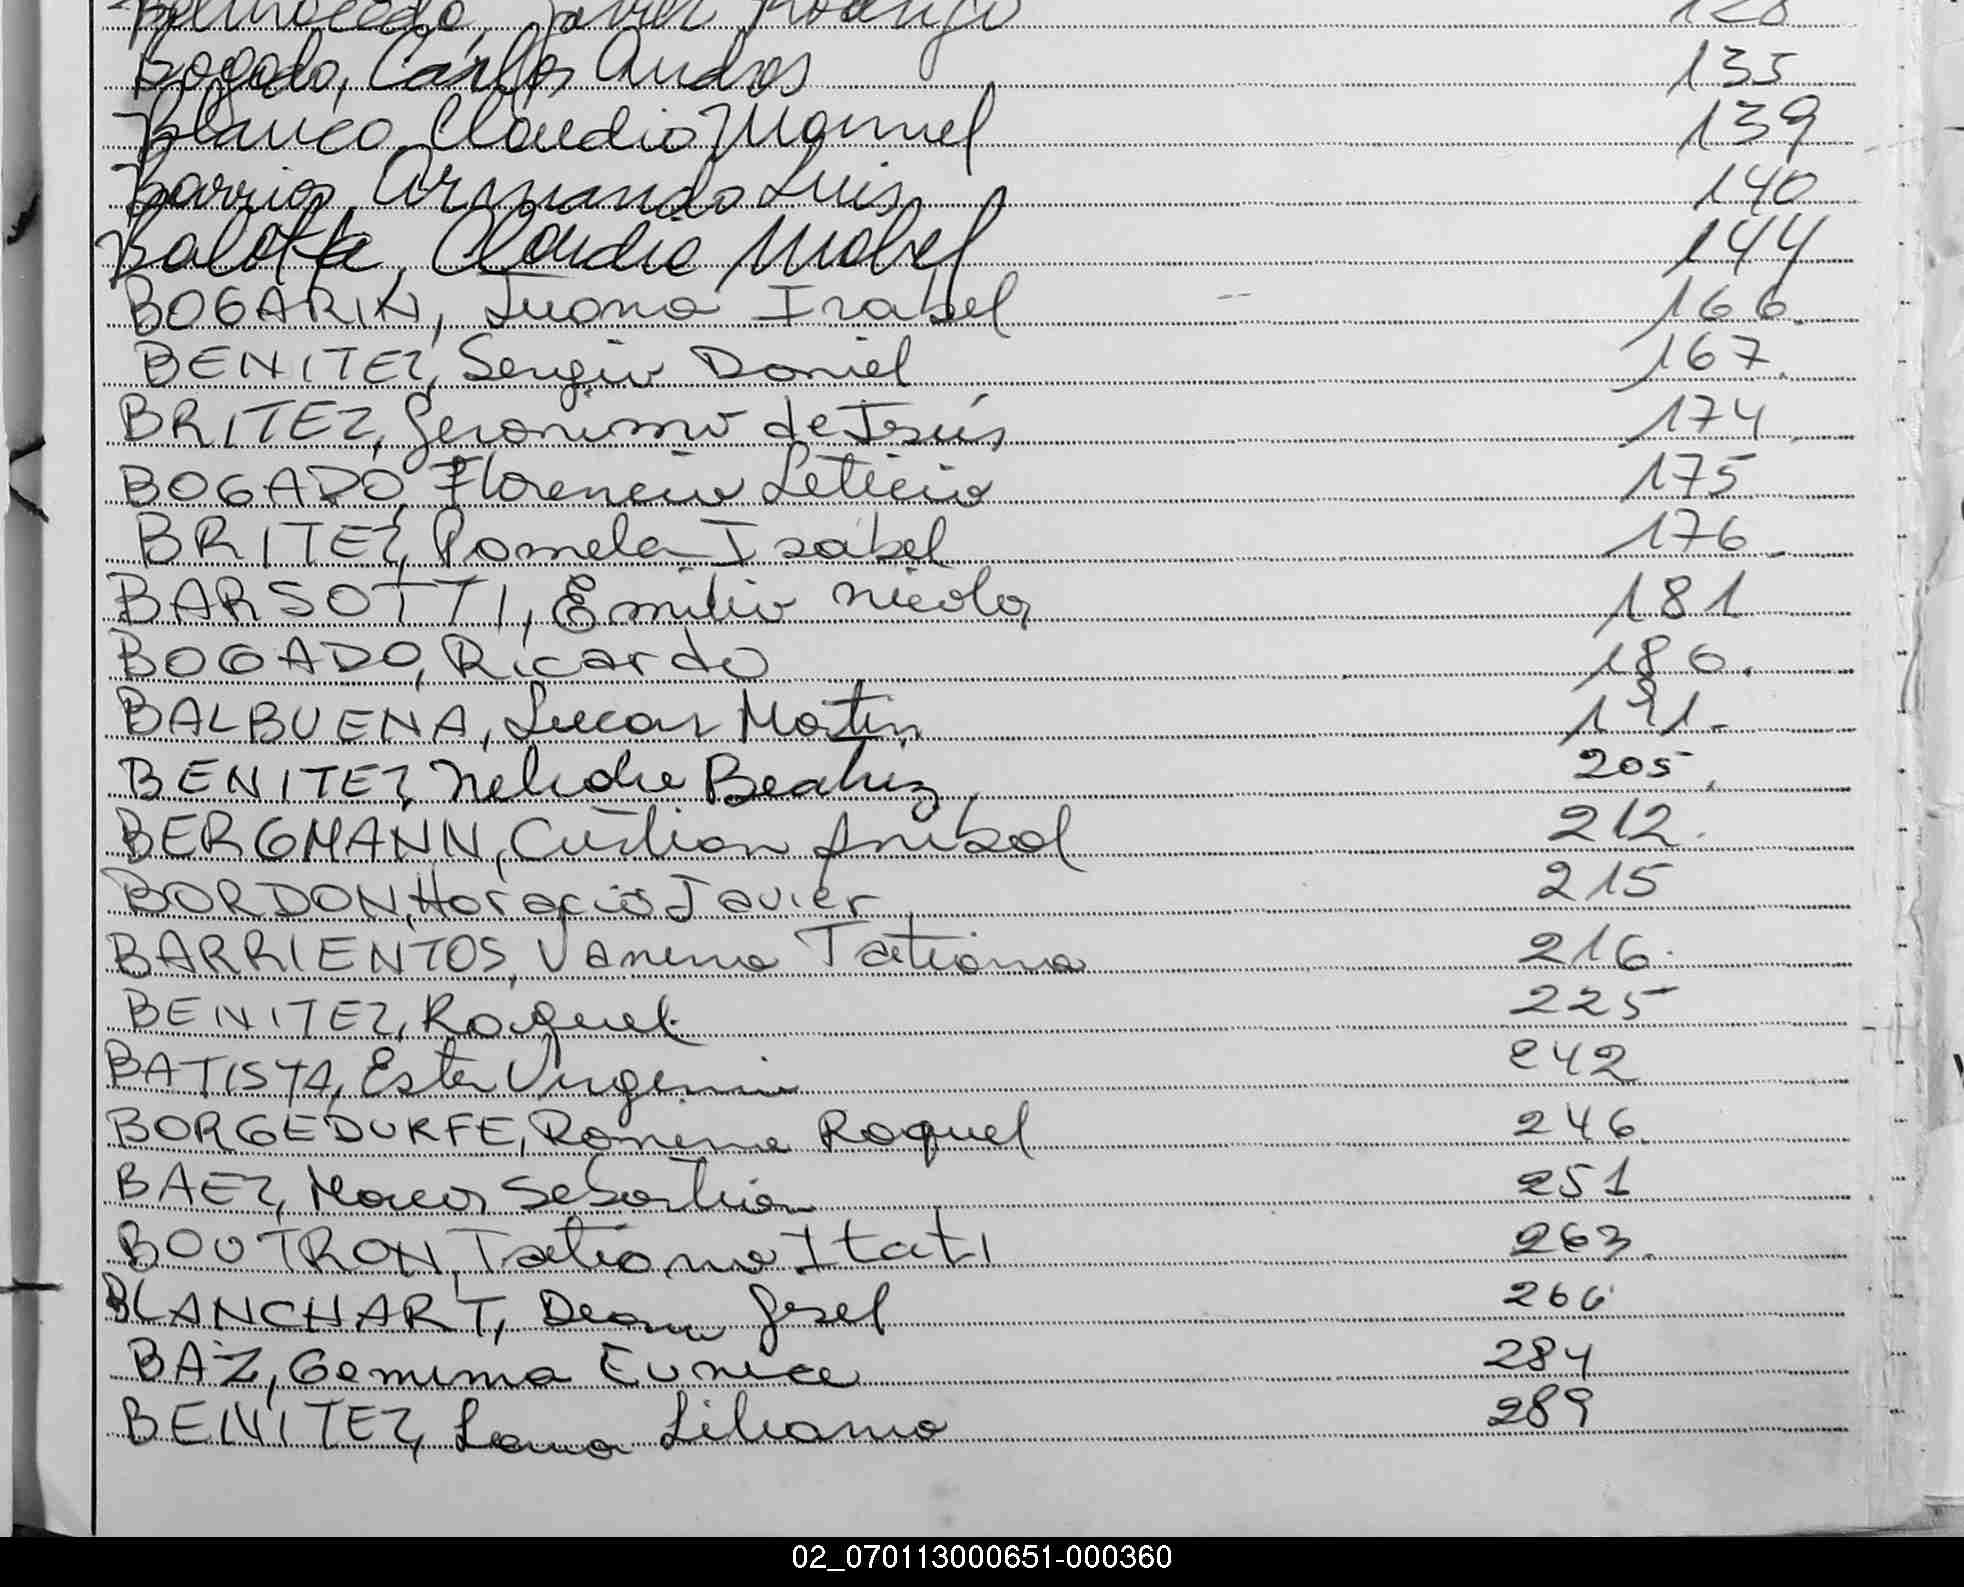 Balmaceda, Javier Rodrigo 128
Bogado, Carlos Andres 135
Blanco, Claudio Manuel 139
Barrios, Armando Luis 140
Claudia Mabel 144
BOGARIN, Juana Isabel 166.
BENITEZ, Sergio Daniel 167.
BRITEZ, Geronimo de Jesús 174.
BOGADO, Florencia Leticia 175
BRITEZ, Pamela Isabel 176.
BARSOTTI, Emilio Nicolas 181
BOGADO, Ricardo 186.
BALBUENA, Lucas Martin 191.-
BENITEZ, Nelida Beatriz 205.
BERGMANN, Cristian Anibal 212.
BORDON, Horacio Javier 215
BARRIENTOS, Vanina Tatiana 216.
BENITEZ, Raquel 225
BATISTA, Ester Virginia 242
Romina Raquel 246.
BAEZ, Marcos Sebastian 251
BOUTRON, Tatiana Itati 263.
BLANCHART, Gisel 266
BAEZ, Gemima Eunice 284
BENITEZ, Liliana 289
02_070113000651-000360